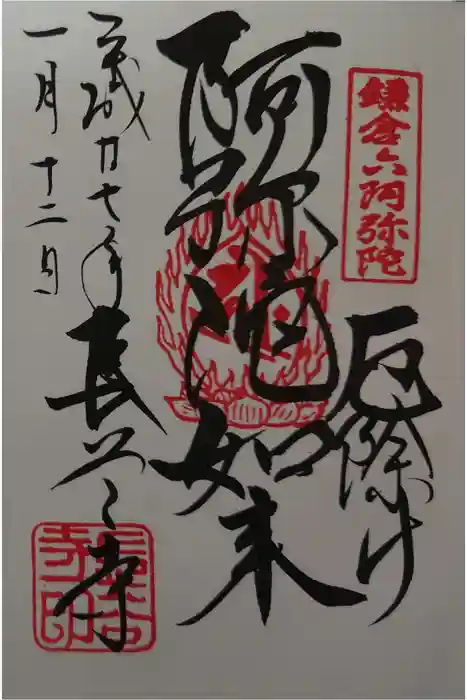 鎌倉六阿弥陀
厄除け
阿弥陀如来
平成廿七年
一月十二日
長谷寺
長谷寺印